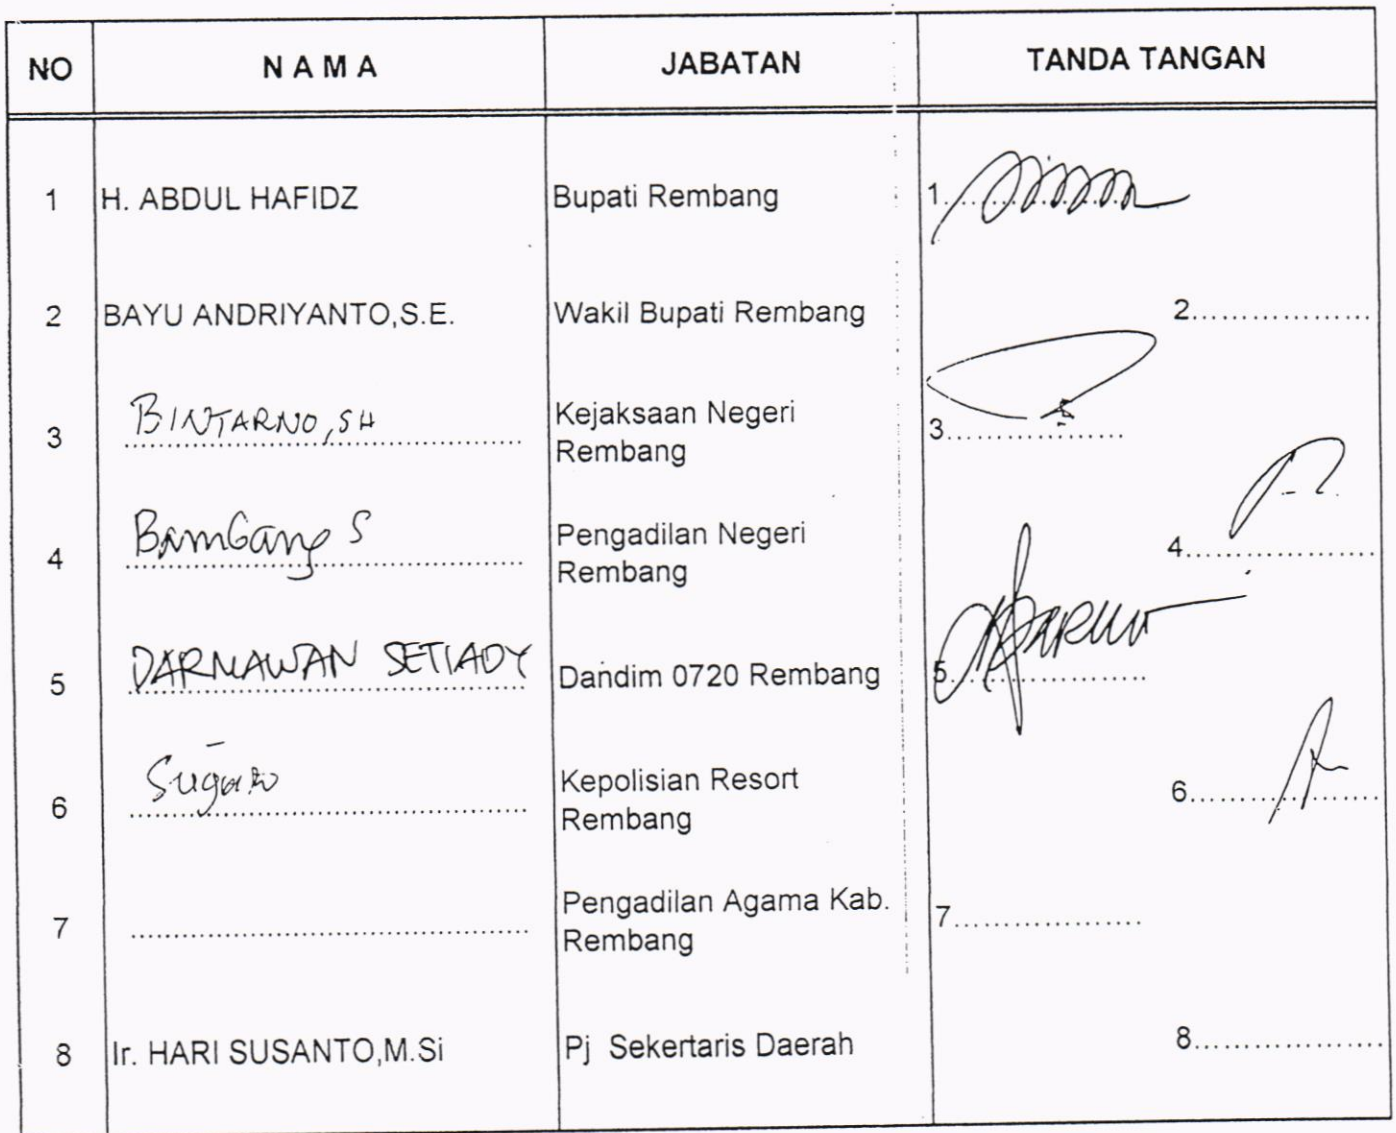 NO N A M A JABATAN TANDA TANGAN
1 H. ABDUL HAFIDZ Bupati Rembang 1....................
2 BAYU ANDRIYANTO,S.E. Wakil Bupati Rembang 2..................
3 BINTARNO, SH Kejaksaan Negeri
Rembang 3..................
4 Bambang S Pengadilan Negeri
Rembang 4..................
5 DARMAWAN SETIADY Dandim 0720 Rembang 5..................
6 Kepolisian Resort
Rembang 6..................
7 .......................................... Pengadilan Agama Kab.
Rembang 7..................
8 Ir. HARI SUSANTO,M.Si Pj Sekertaris Daerah 8..................